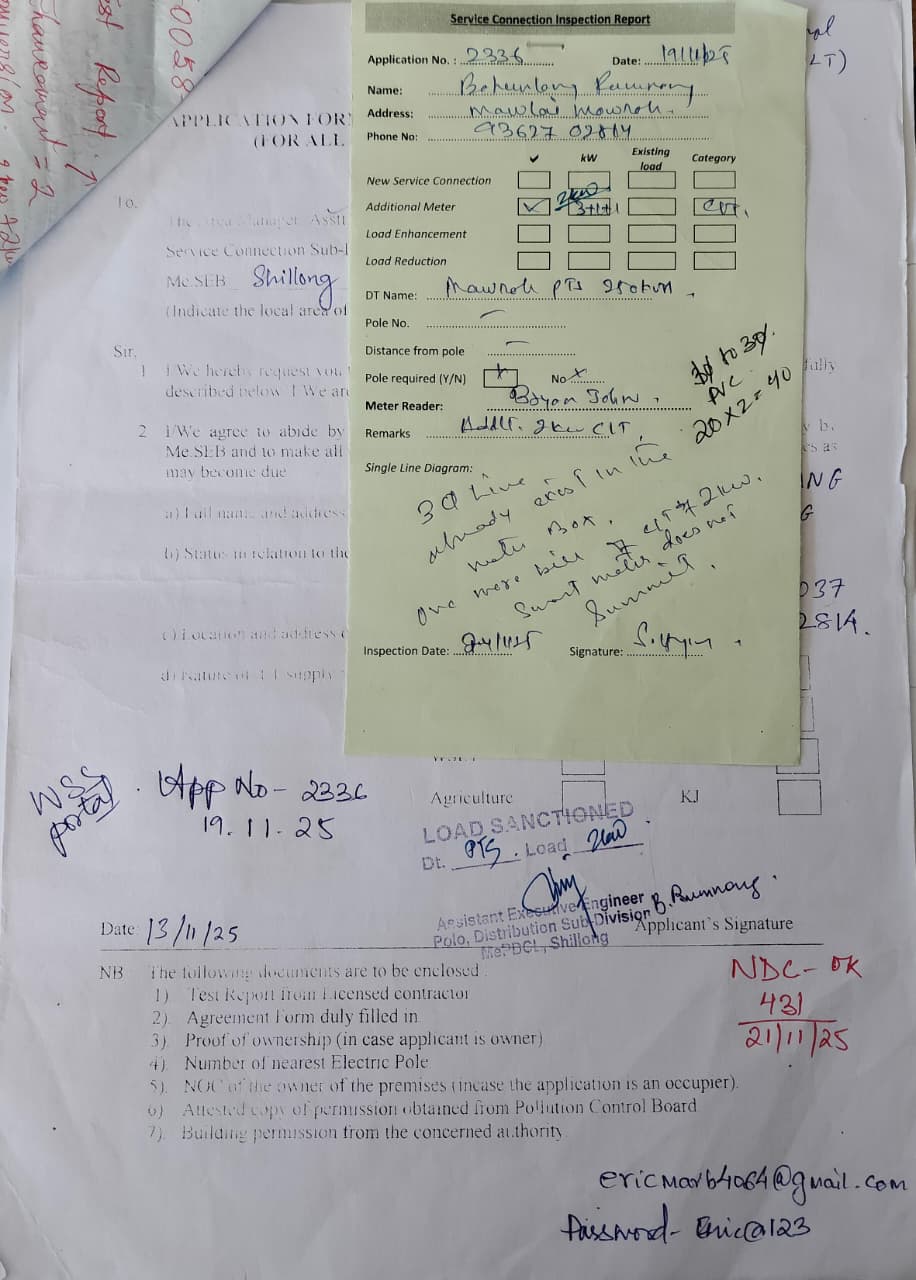 0058
Test Report - 1
= 2
APPLICATION FOR
(FOR ALL
LT)
Service Connection Inspection Report
Application No. : 2336 Date: 19/11/25
Name:
Address: Mawlai Mawroh.
Phone No: 93627 02814
✓ kW Existing load Category
New Service Connection
2kw
Additional Meter ✓ 3+1+1 CLT,
Load Enhancement
Load Reduction
DT Name: Mawroh PTS 250kVA
Pole No. —
Distance from pole —
Pole required (Y/N) No
Meter Reader: John
Remarks Addl. 2kw CLT,
3φ to 3φ
PVC
20 x 2 = 40
Single Line Diagram:
3φ Line
already exist in the
meter Box.
one more bill CLT 2kw.
Smart meter does not
Summit.
Inspection Date: Signature:
To,
The Area Manager, Asstt
Service Connection Sub-
Me.SEB Shillong
(Indicate the local area of
Sir,
1 I/We hereby request you
described below. I/We are
2 I/We agree to abide by
Me.SEB and to make all
may become due
a) Full name and address
b) Status in relation to the
c) Location and address
d) Nature of L.T supply
fully
es as
ING
G
037
2814.
Agriculture KJ
WSS portal
App No - 2336
19.11.25
LOAD SANCTIONED
Dt. PTS. Load 2kw
Assistant Executive Engineer
Polo, Distribution Sub-Division
MePDCL, Shillong
Date 13/11/25 Applicant's Signature
NB The following documents are to be enclosed
1) Test Report from Licensed contractor
2) Agreement Form duly filled in
3) Proof of ownership (in case applicant is owner)
4) Number of nearest Electric Pole
5) NOC of the owner of the premises (incase the application is an occupier).
6) Attested copy of permission obtained from Pollution Control Board
7) Building permission from the concerned authority
NDC - OK
431
21/11/25
ericmarb4064@gmail.com
Password- Eric@123